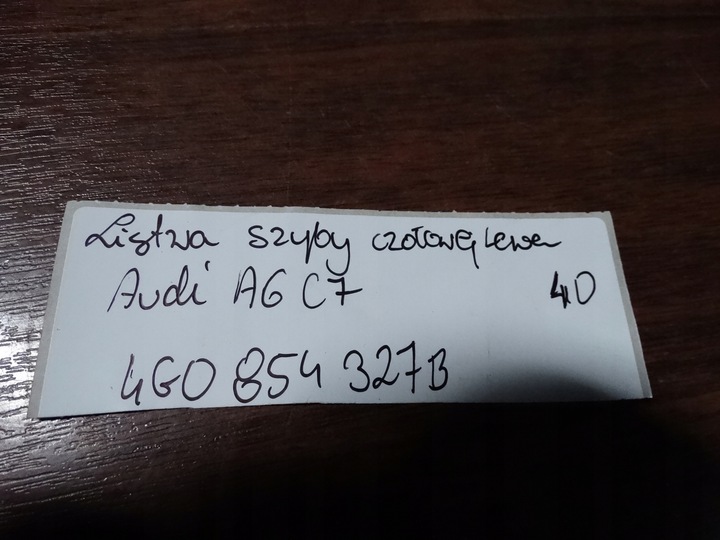 Listwa szyby czołowej lewa
Audi A6 C7 40
4G0 854 327B